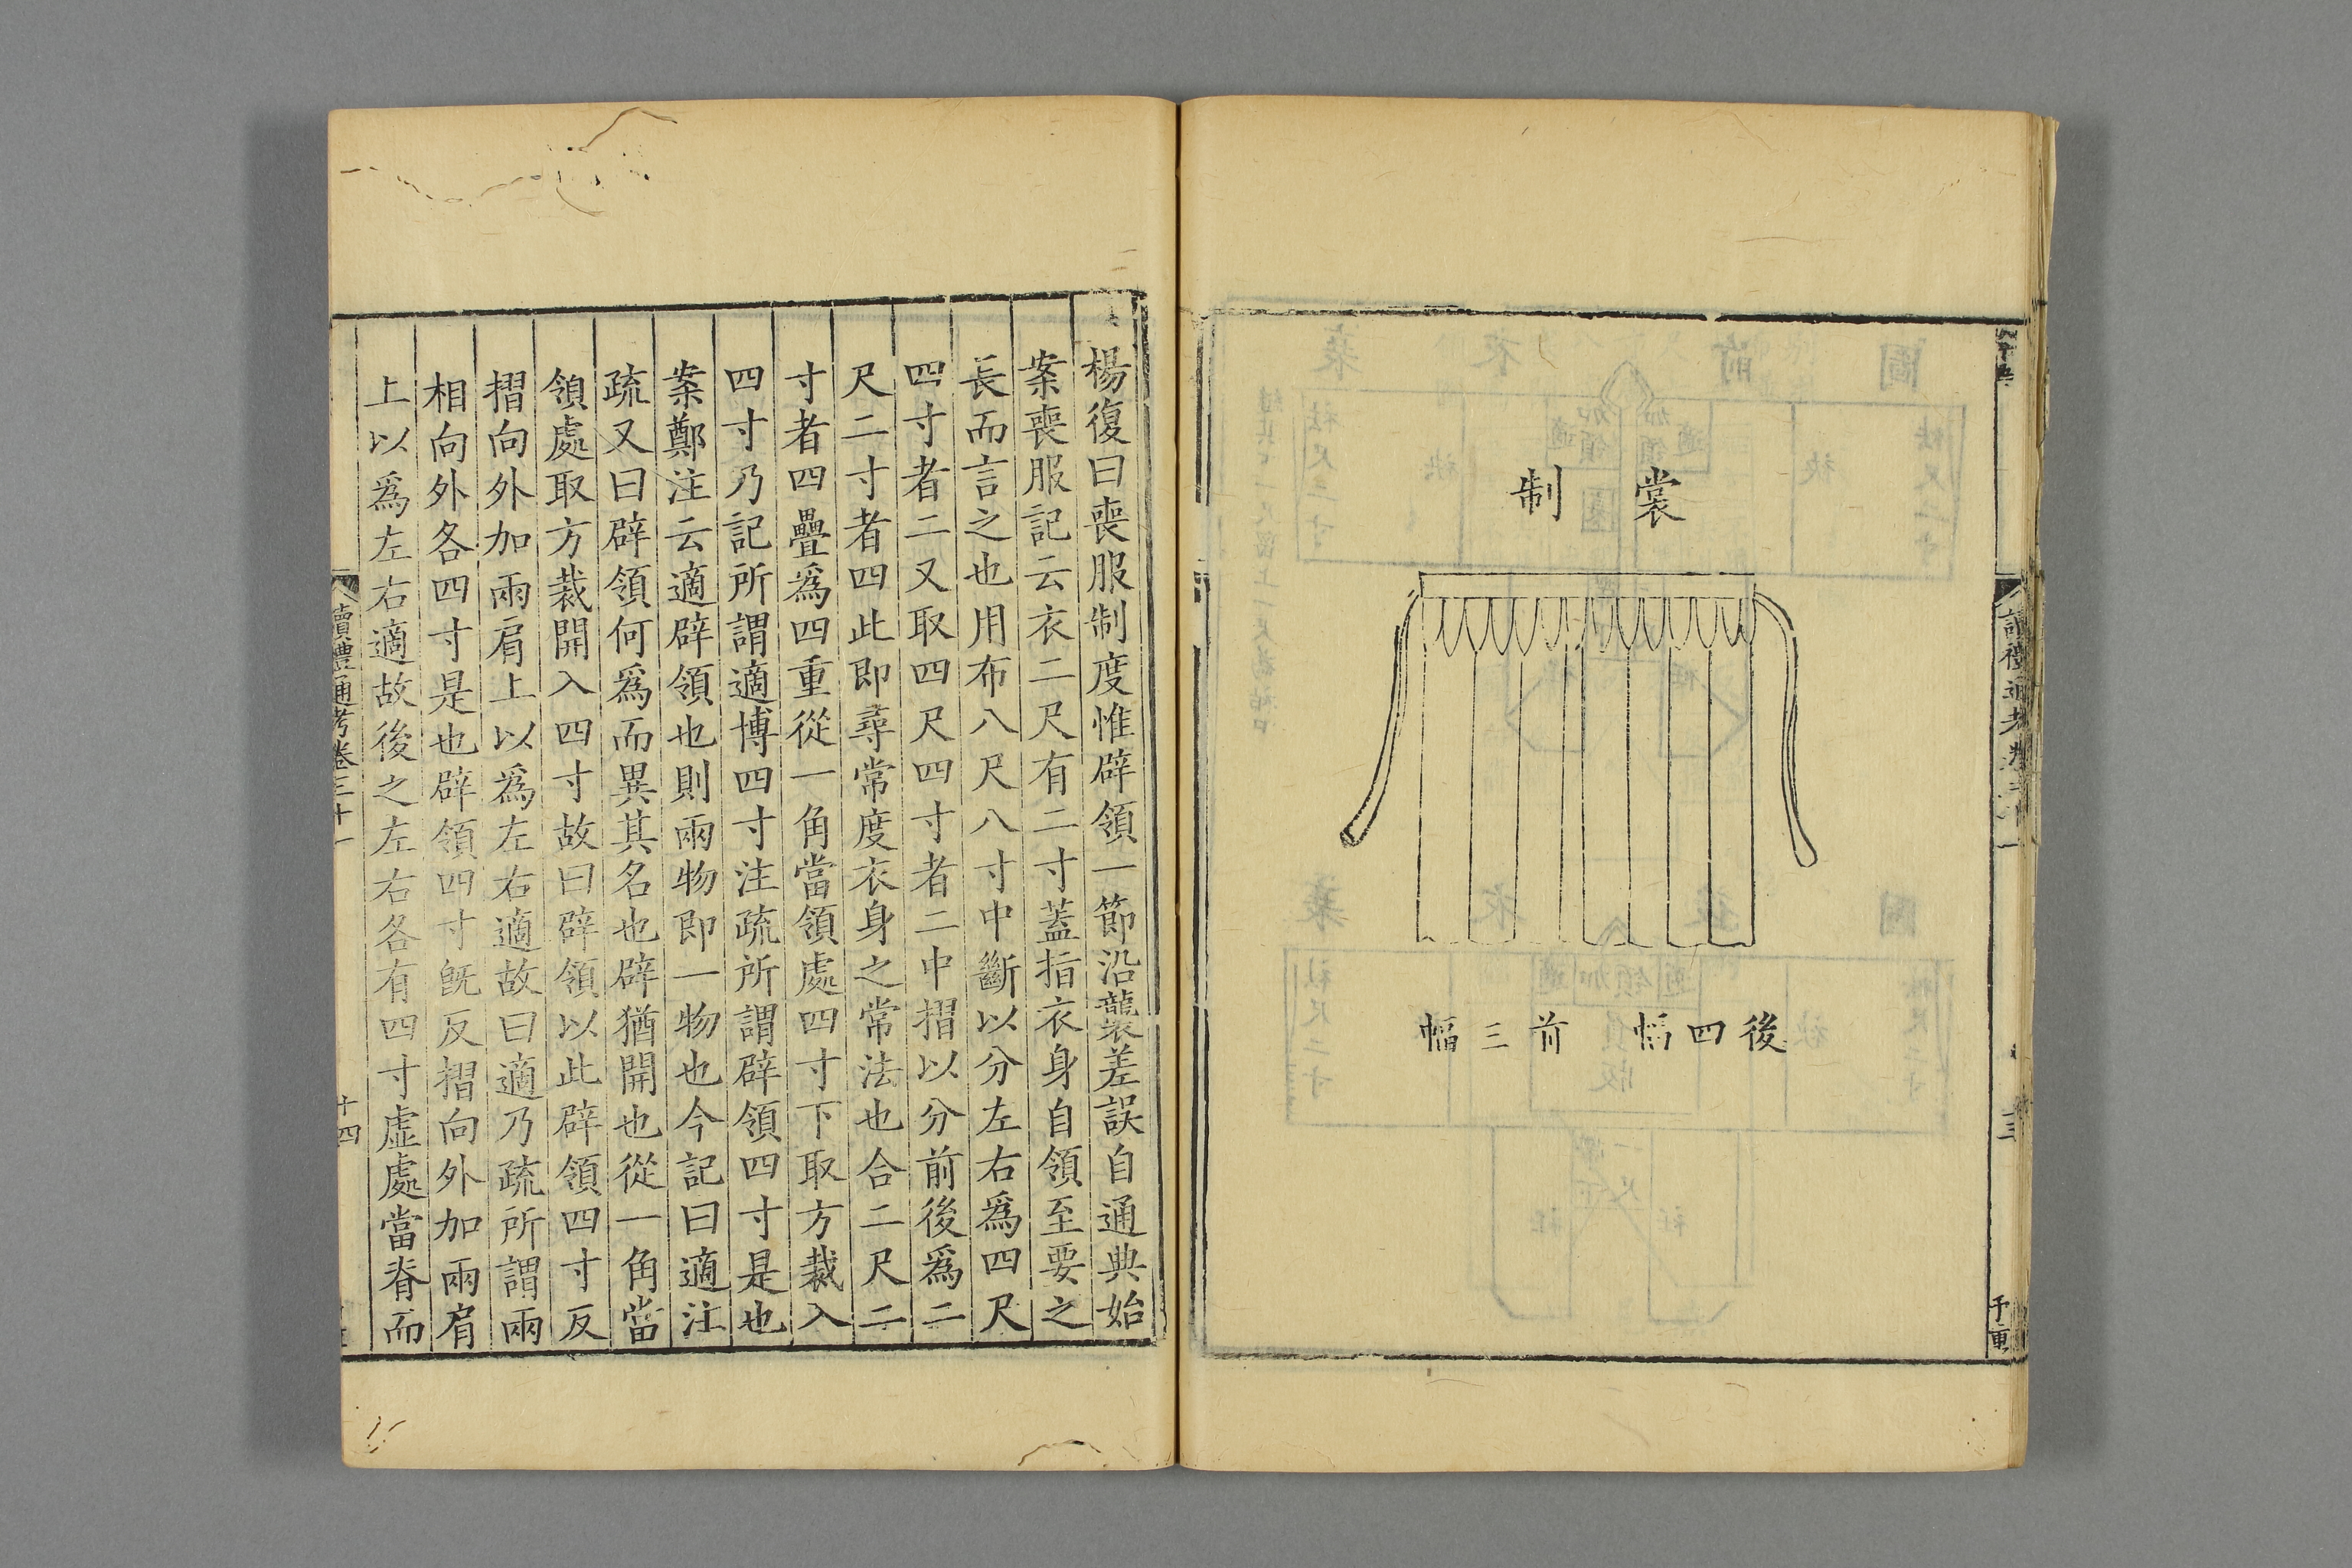 裳制
後四幅　前三幅
讀禮通考卷三十一
楊復曰喪服制度惟辟領一節沿襲差誤自通典始
案喪服記云衣二尺有二寸蓋指衣身自領至要之
長而言之也用布八尺八寸中斷以分左右爲四尺
四寸者二又取四尺四寸者二中摺以分前後爲二
尺二寸者四此即尋常度衣身之常法也合二尺二
寸者四疊爲四重從一角當領處四寸下取方裁入
四寸乃記所謂適博四寸注疏所謂辟領四寸是也
案鄭注云適辟領也則兩物即一物也今記曰適注
疏又曰辟領何爲而異其名也辟猶開也從一角當
領處取方裁開入四寸故曰辟領以此辟領四寸反
摺向外加兩肩上以爲左右適故曰適乃疏所謂兩
相向外各四寸是也辟領四寸旣反摺向外加兩肩
上以爲左右適故後之左右各有四寸虛處當脊而
讀禮通考卷三十一
十四